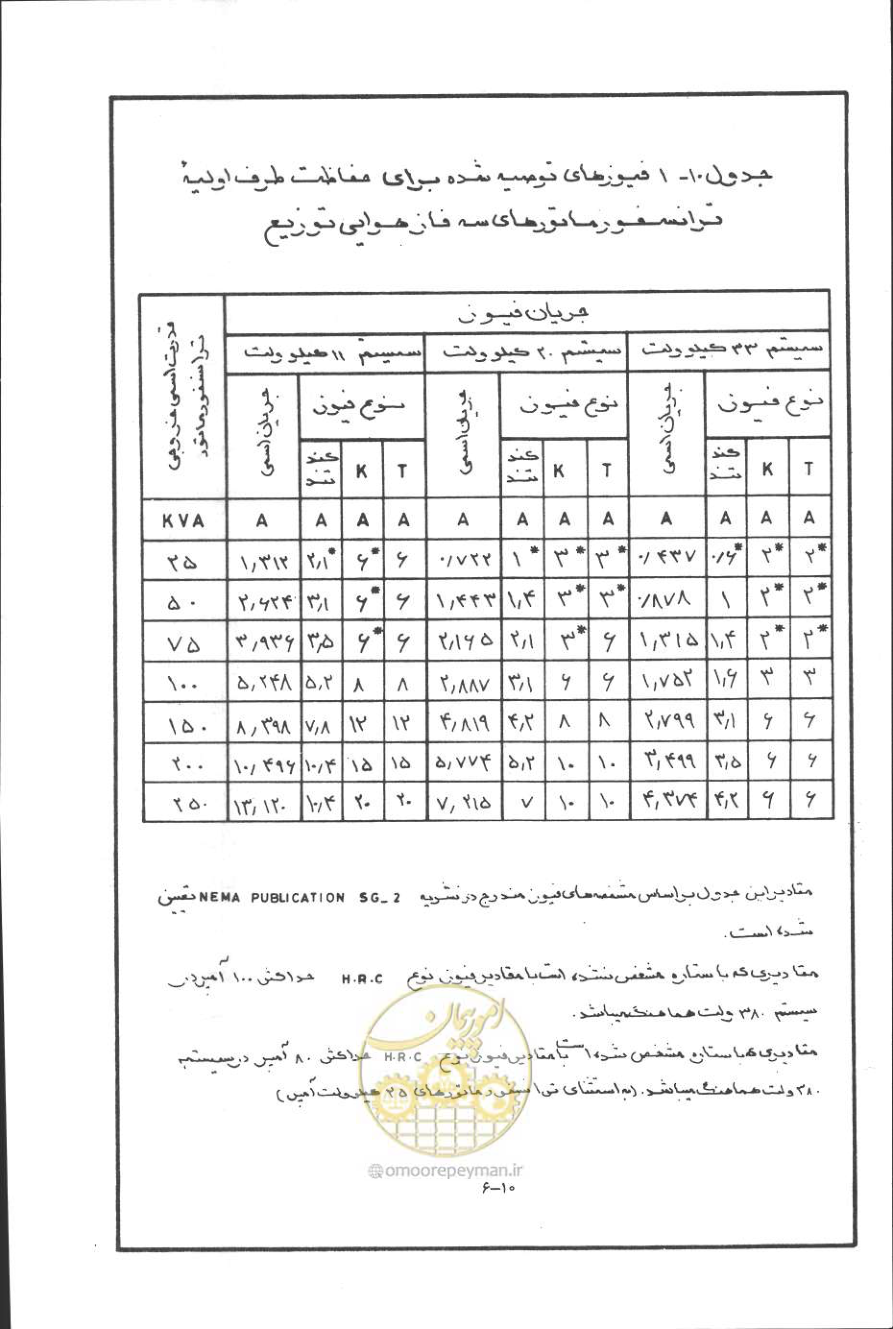 جدول ۱۰-۱ فیوزهای توصیه شده برای حفاظت طرف اولیهٔ
ترانسفورماتورهای سه فاز هوایی توزیع
قدرت اسمی خروجی ترانسفورماتور
جریان فیوز
سیستم ۱۱ کیلو ولت سیستم ۲۰ کیلو ولت سیستم ۳۳ کیلو ولت
جریان اسمی نوع فیوز جریان اسمی نوع فیوز جریان اسمی نوع فیوز
کند تند K T کند تند K T کند تند K T
KVA A A A A A A A A A A A A
۲۵ ۱,۳۱۲ ۲,۱* ۶* ۶ ۰/۷۲۲ ۱* ۳* ۳* ۰/۴۳۷ ۰/۶* ۲* ۲*
۵۰ ۲,۶۲۴ ۳,۱ ۶* ۶ ۱,۴۴۳ ۱,۴ ۳* ۳* ۰/۸۷۸ ۱ ۲* ۲*
۷۵ ۳,۹۳۶ ۳,۵ ۶* ۶ ۲,۱۶۵ ۲,۱ ۳* ۶ ۱,۳۱۵ ۱,۴ ۲* ۲*
۱۰۰ ۵,۲۴۸ ۵,۲ ۸ ۸ ۲,۸۸۷ ۳,۱ ۶ ۶ ۱,۷۵۲ ۱,۶ ۳ ۳
۱۵۰ ۸,۳۹۸ ۷,۸ ۱۲ ۱۲ ۴,۸۱۹ ۴,۲ ۸ ۸ ۲,۷۹۹ ۳,۱ ۶ ۶
۲۰۰ ۱۰,۴۹۶ ۱۰,۴ ۱۵ ۱۵ ۵,۷۷۴ ۵,۲ ۱۰ ۱۰ ۳,۴۹۹ ۳,۵ ۶ ۶
۲۵۰ ۱۳,۱۲۰ ۱۰,۴ ۲۰ ۲۰ ۷,۲۱۵ ۷ ۱۰ ۱۰ ۴,۳۷۴ ۴,۲ ۶ ۶
مقادیر این جدول بر اساس مشخصه های فیوز مندرج در نشریه NEMA PUBLICATION SG_2 تعیین
شده است.
مقادیری که با ستاره مشخص نشده است با مقادیر فیوز نوع H.R.C حداکثر ۱۰۰ آمپر در
سیستم ۳۸۰ ولت هماهنگ میباشد.
مقادیری که با ستاره مشخص شده است با مقادیر فیوز نوع H.R.C حداکثر ۸۰ آمپر در سیستم
۳۸۰ ولت هماهنگ میباشد. (به استثنای ترانسفورماتورهای ۲۵ کیلو ولت آمپر)
امور پیمان
@omoorepeyman.ir
۶-۱۰